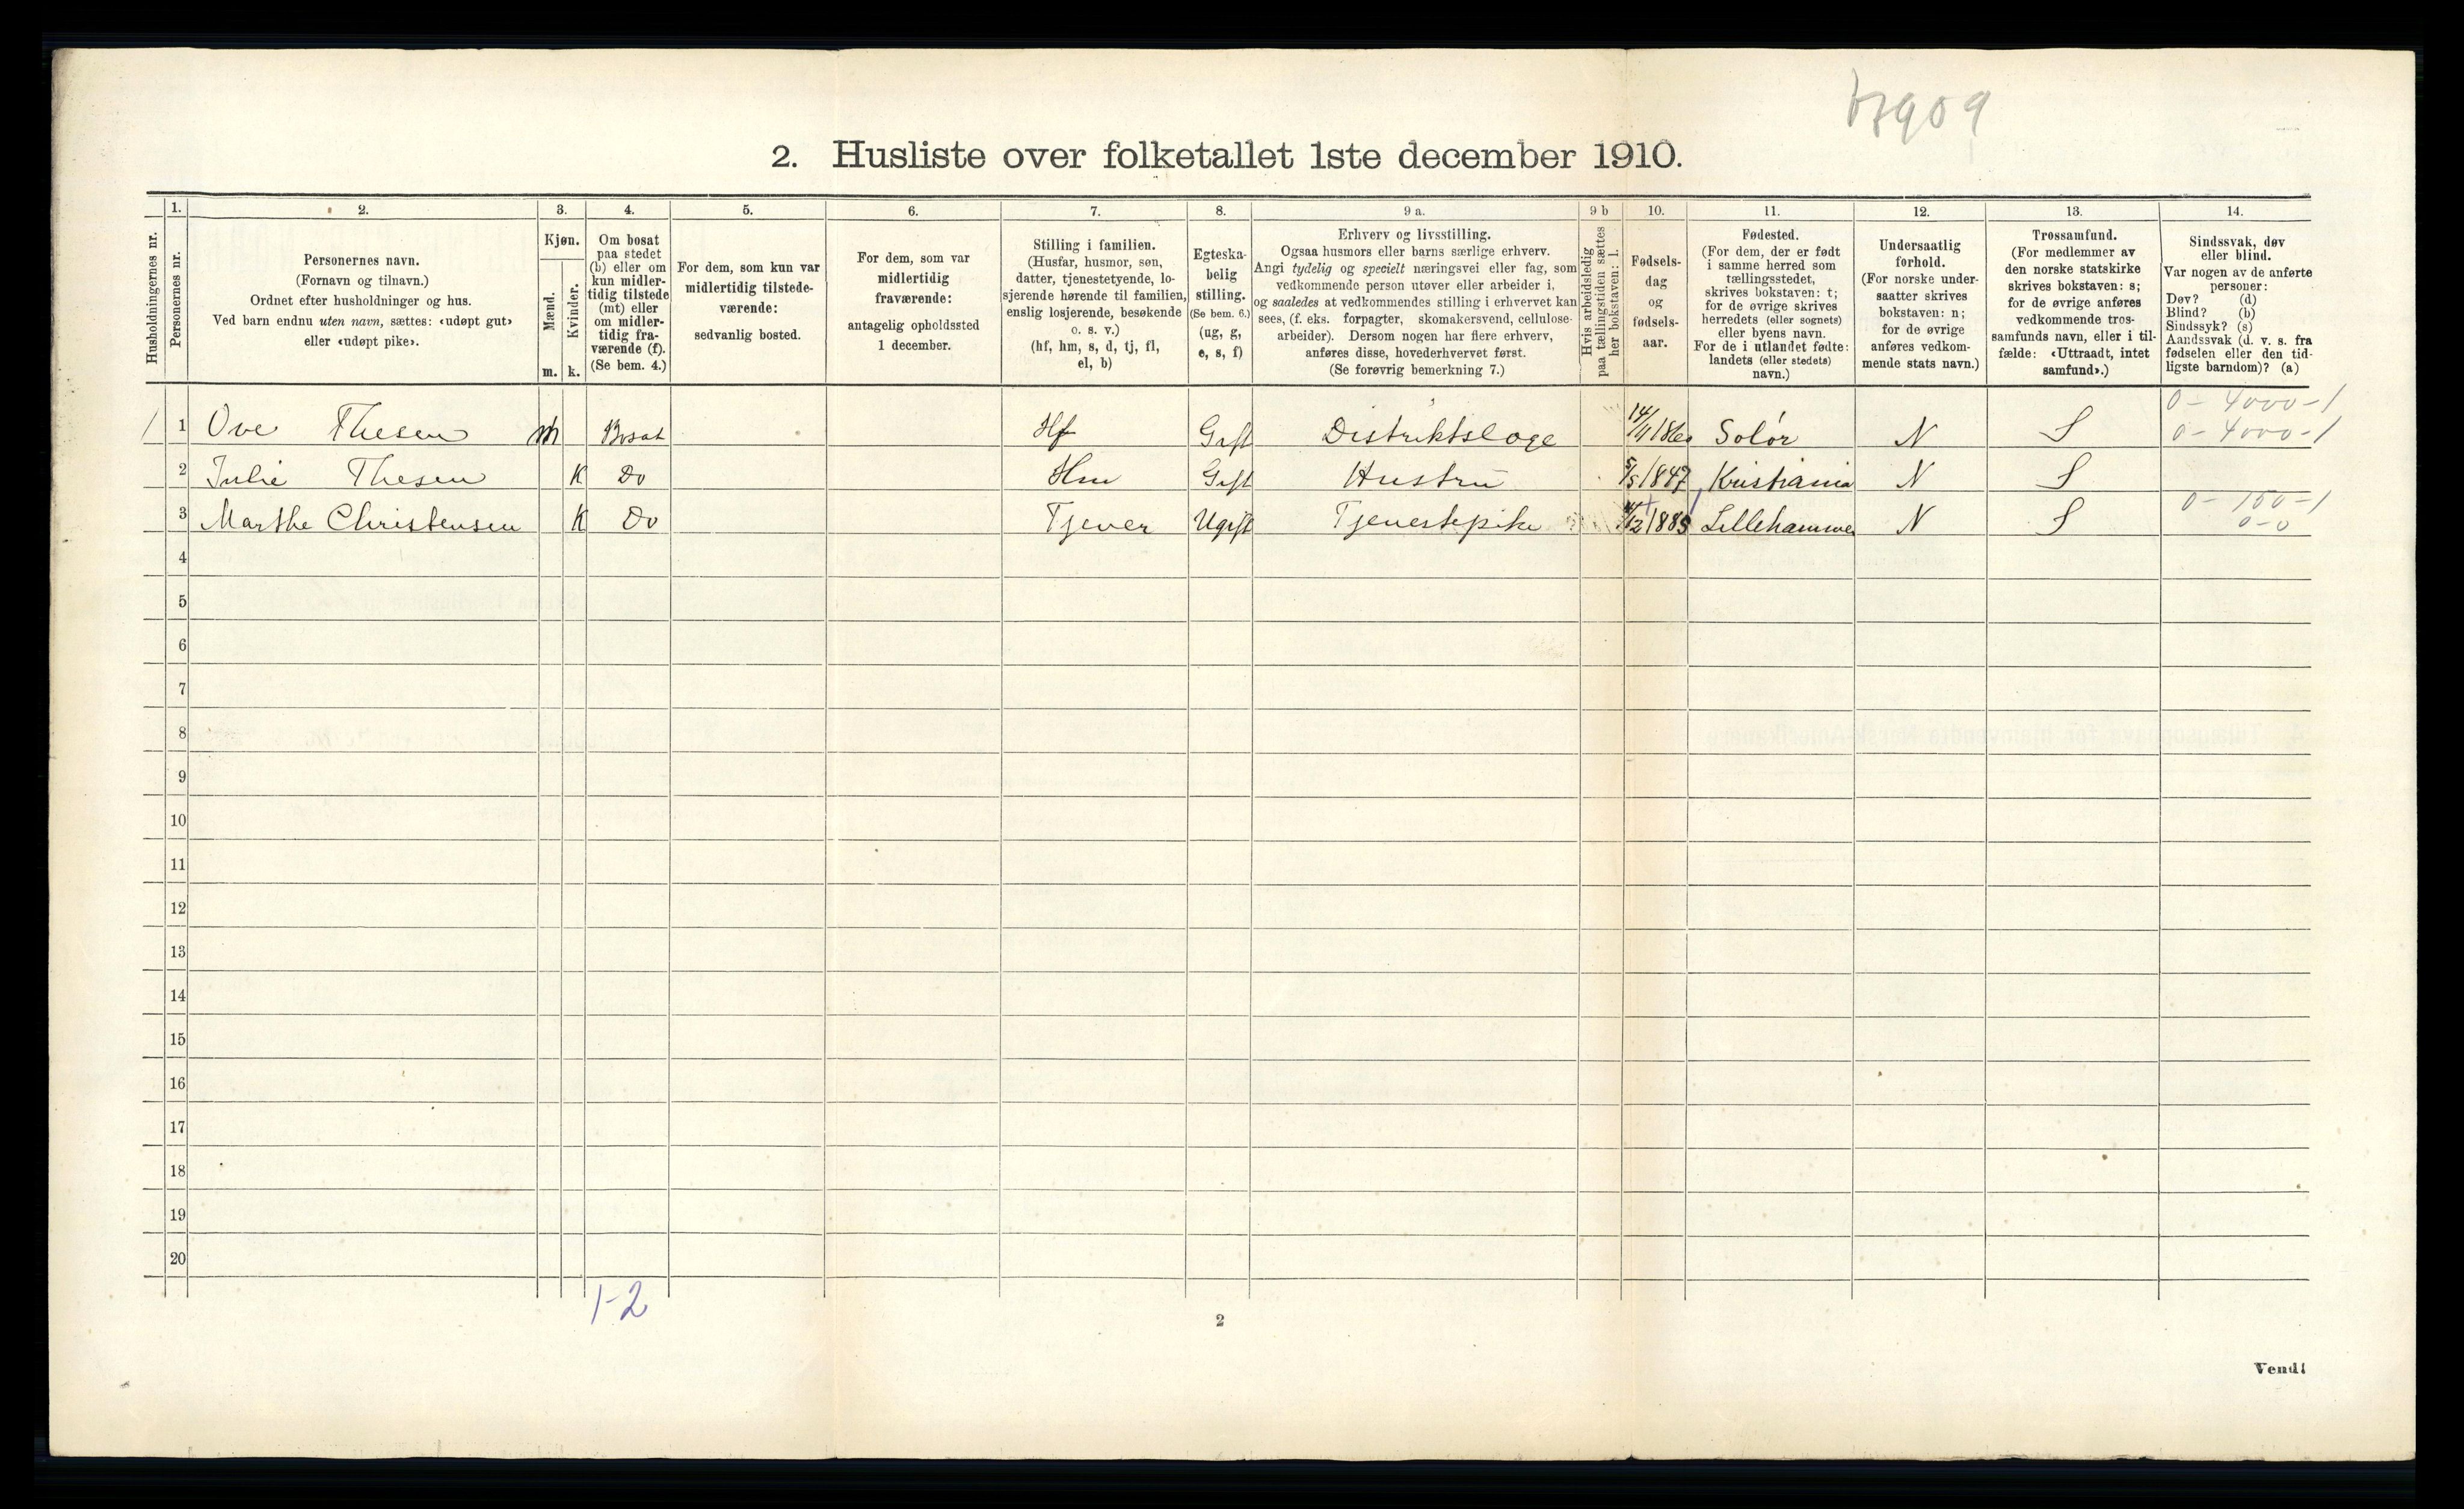 2. Husliste over folketallet 1ste december 1910.
Husholdningernes nr.
1.
Personernes nr.
2.
Personernes navn.
(Fornavn og tilnavn.)
Ordnet efter husholdninger og hus.
Ved barn endnu uten navn, sættes: «udøpt gut»
eller «udøpt pike».
3.
Kjøn.
Mænd.
Kvinder.
m. k.
4.
Om bosat
paa stedet
(b) eller om
kun midler-
tidig tilstede
(mt) eller
om midler-
tidig fra-
værende (f).
(Se bem. 4.)
5.
For dem, som kun var
midlertidig tilstede-
værende:
sedvanlig bosted.
6.
For dem, som var
midlertidig
fraværende:
antagelig opholdssted
1 december.
7.
Stilling i familien.
(Husfar, husmor, søn,
datter, tjenestetyende, lo-
sjerende hørende til familien,
enslig losjerende, besøkende
o. s. v.)
(hf, hm, s, d, tj, fl,
el, b)
8.
Egteska-
belig
stilling.
(Se bem. 6.)
(ug, g,
e, s, f)
9 a.
Erhverv og livsstilling.
Ogsaa husmors eller barns særlige erhverv.
Angi tydelig og specielt næringsvei eller fag, som
vedkommende person utøver eller arbeider i,
og saaledes at vedkommendes stilling i erhvervet kan
sees, (f. eks. forpagter, skomakersvend, cellulose-
arbeider). Dersom nogen har flere erhverv,
anføres disse, hovederhvervet først.
(Se forøvrig bemerkning 7.)
9 b
Hvis arbeidsledig
paa tællingstiden sættes
her bokstaven: l.
10.
Fødsels-
dag
og
fødsels-
aar.
11.
Fødested.
(For dem, der er født
i samme herred som
tællingsstedet,
skrives bokstaven: t;
for de øvrige skrives
herredets (eller sognets)
eller byens navn.
For de i utlandet fødte:
landets (eller stedets)
navn.)
12.
Undersaatlig
forhold.
(For norske under-
saatter skrives
bokstaven: n;
for de øvrige
anføres vedkom-
mende stats navn.)
13.
Trossamfund.
(For medlemmer av
den norske statskirke
skrives bokstaven: s;
for de øvrige anføres
vedkommende tros-
samfunds navn, eller i til-
fælde: «Uttraadt, intet
samfund».)
14.
Sindssvak, døv
eller blind.
Var nogen av de anførte
personer:
Døv? (d)
Blind? (b)
Sindssyk? (s)
Aandssvak (d. v. s. fra
fødselen eller den tid-
ligste barndom)? (a)
0 - 4000 - 1
1 1 Ove Thesen m Bosat Hf Gift Distriktslæge Solør N S 0 - 4000 - 1
2 Julie Thesen K Do Hm Gift Hustru 5/5 1847 Kristiania N S
3 Marthe Christensen K Do Tjener Ugift Tjenestepike Lillehammer N S 0 - 150 - 1
0 - 0
4
5
6
7
8
9
10
11
12
13
14
15
16
17
18
19
20
1-2
2
Vend!